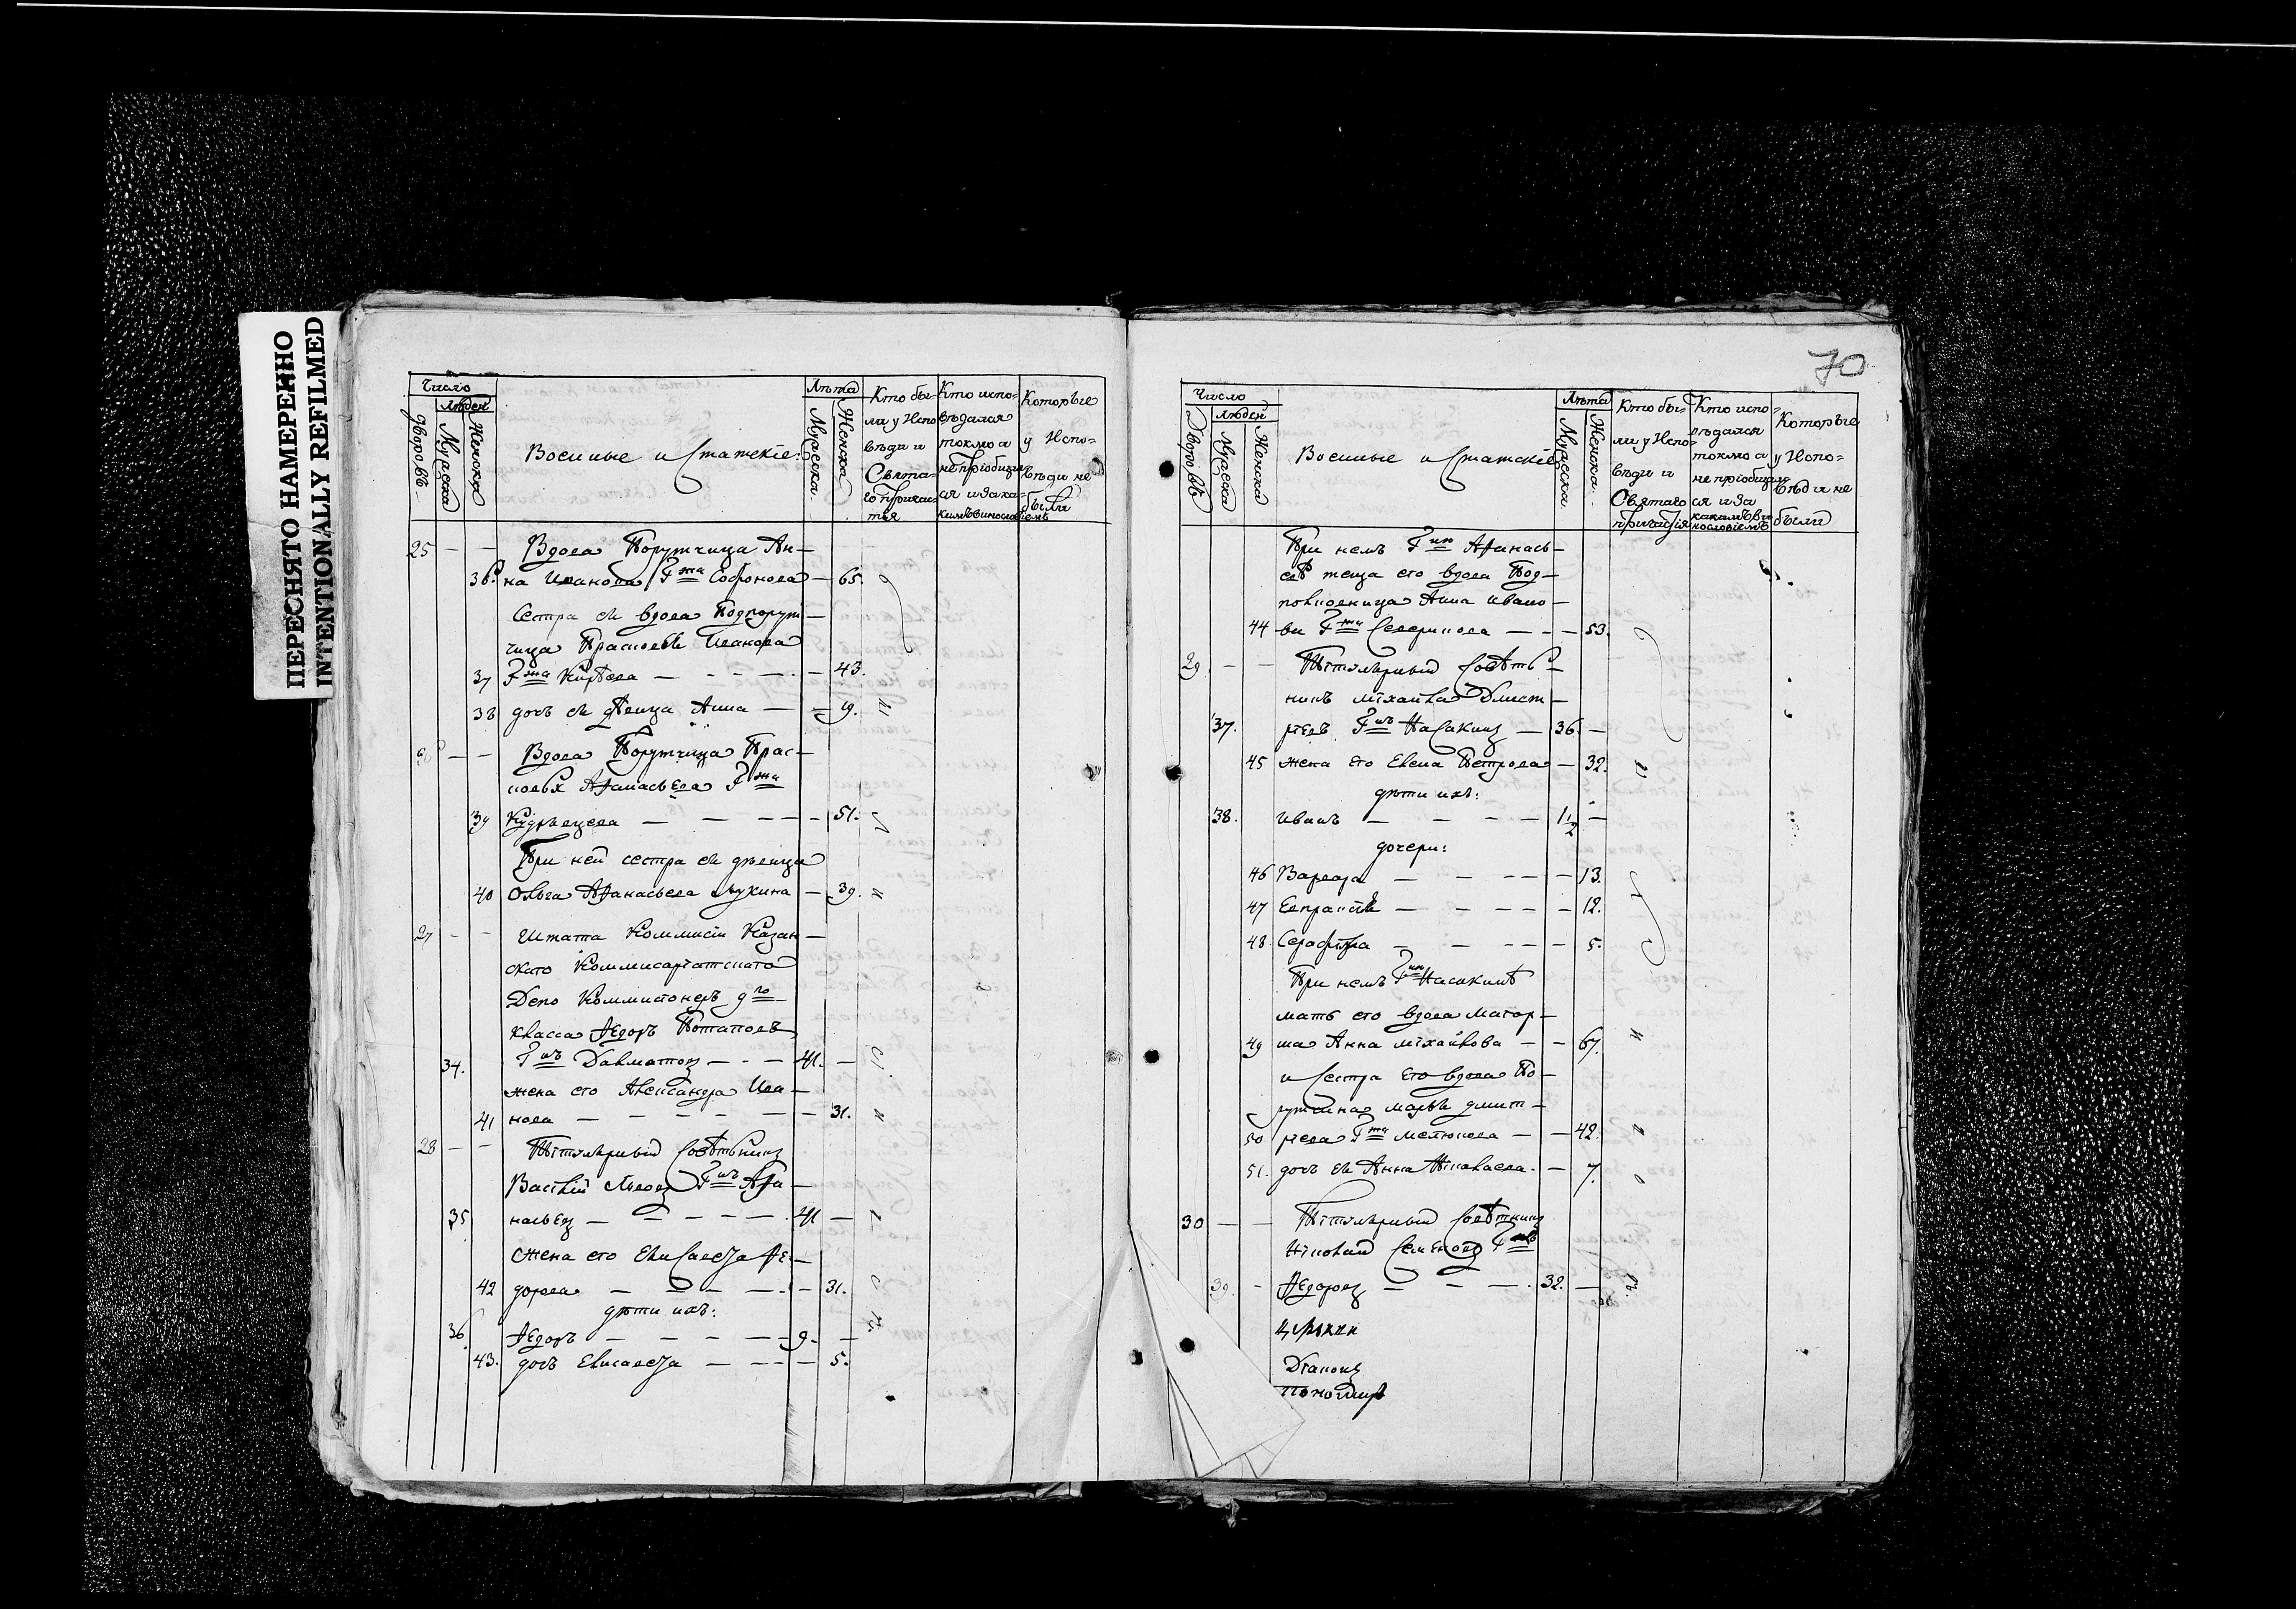 ПЕРЕСНЯТО НАМЕРЕННО
INTENTIONALLY REFILMED
Число
Людей
Дворовъ
Мужеска
Женска
Военные и Статскіе:
Лѣта
Мужеска
Женска
Кто бы-
ли у Испо
вѣди и
Свята-
го причас-
тія
Кто испо-
вѣдался
токмо а
не пріобщил
ся и за ка-
кимъ винословіемъ
Которые
у Испо-
вѣди не
были
25 — — Вдова Порутчица Ан—
36. на Иванова Гжа Софонова — 65.
Сестра ея вдова Подпорут—
чица Прасковья Иванова
37 Гжа Кирѣева — - - — - — 43.
38 дочь ея дѣвица Анна — — 19.
— — Вдова Порутчица Прас—
ковья Афанасьева Гжа
39 Кудрявцева — — — — 51.
При ней сестра ея дѣвица
40 Ольга Афанасьева Лукина — 39.
27 - - Штата Коммисіи Казан—
скаго Коммисаріатскаго
Депо Коммисіонеръ 9го
класса Ѳедоръ Потаповъ
34. Гнъ Далматовъ — - — 41. —
жена его Александра Ива—
41 нова — — — — — — 31.
28 — - Титулярный Совѣтникъ
Василій Львовъ Гнъ Афа—
35 насьевъ — — — — — 41 —
жена его Елисавета Ѳе—
42 дорова — — — — — 31.
дѣти ихъ:
36. Ѳедоръ — — — — 9. —
43. дочь Елисавета — — — — 5.
70
Число
Людей
Дворовъ
Мужеска
Женска
Военные и Статскіе
Лѣта
Мужеска
Женска.
Кто бы-
ли у Испо-
вѣди и
Святаго
причастія
Кто испо-
вѣдался
токмо а
не пріобщил
ся и за
какимъ ви
нословіемъ
Которые
у Испо=
вѣди не
были
При немъ Гнѣ Афанась—
евѣ теща его вдова Под—
полковница Анна Ивано—
44 ва Гжа Северинова — - — 53.
29. — — Титулярный Совѣт—
никъ Михайла Дмит—
37. ріевъ Гнъ Насакинъ — 36. —
45 жена его Елена Петрова — 32.
дѣти ихъ:
38. Иванъ — — - — 1 1/2 —
дочери:
46 Варвара — — - - — 13.
47 Евпраксія — — - - — 12.
48. Серафима — — - - — 5.
При немъ Гнѣ Насакинѣ
мать его вдова Маіор—
49 ша Анна Михайлова — — 67.
и Сестра его вдова По—
рутчица Марья Дмит—
50 ріева Гжа — — 42.
51. дочь ея Анна Николаева. — 7.
30 — — Титулярный Совѣтникъ
Николай Семеновъ Гнъ
39. - Ѳедоровъ — — — . 32. —
церкви
Діаконъ
Пономарь